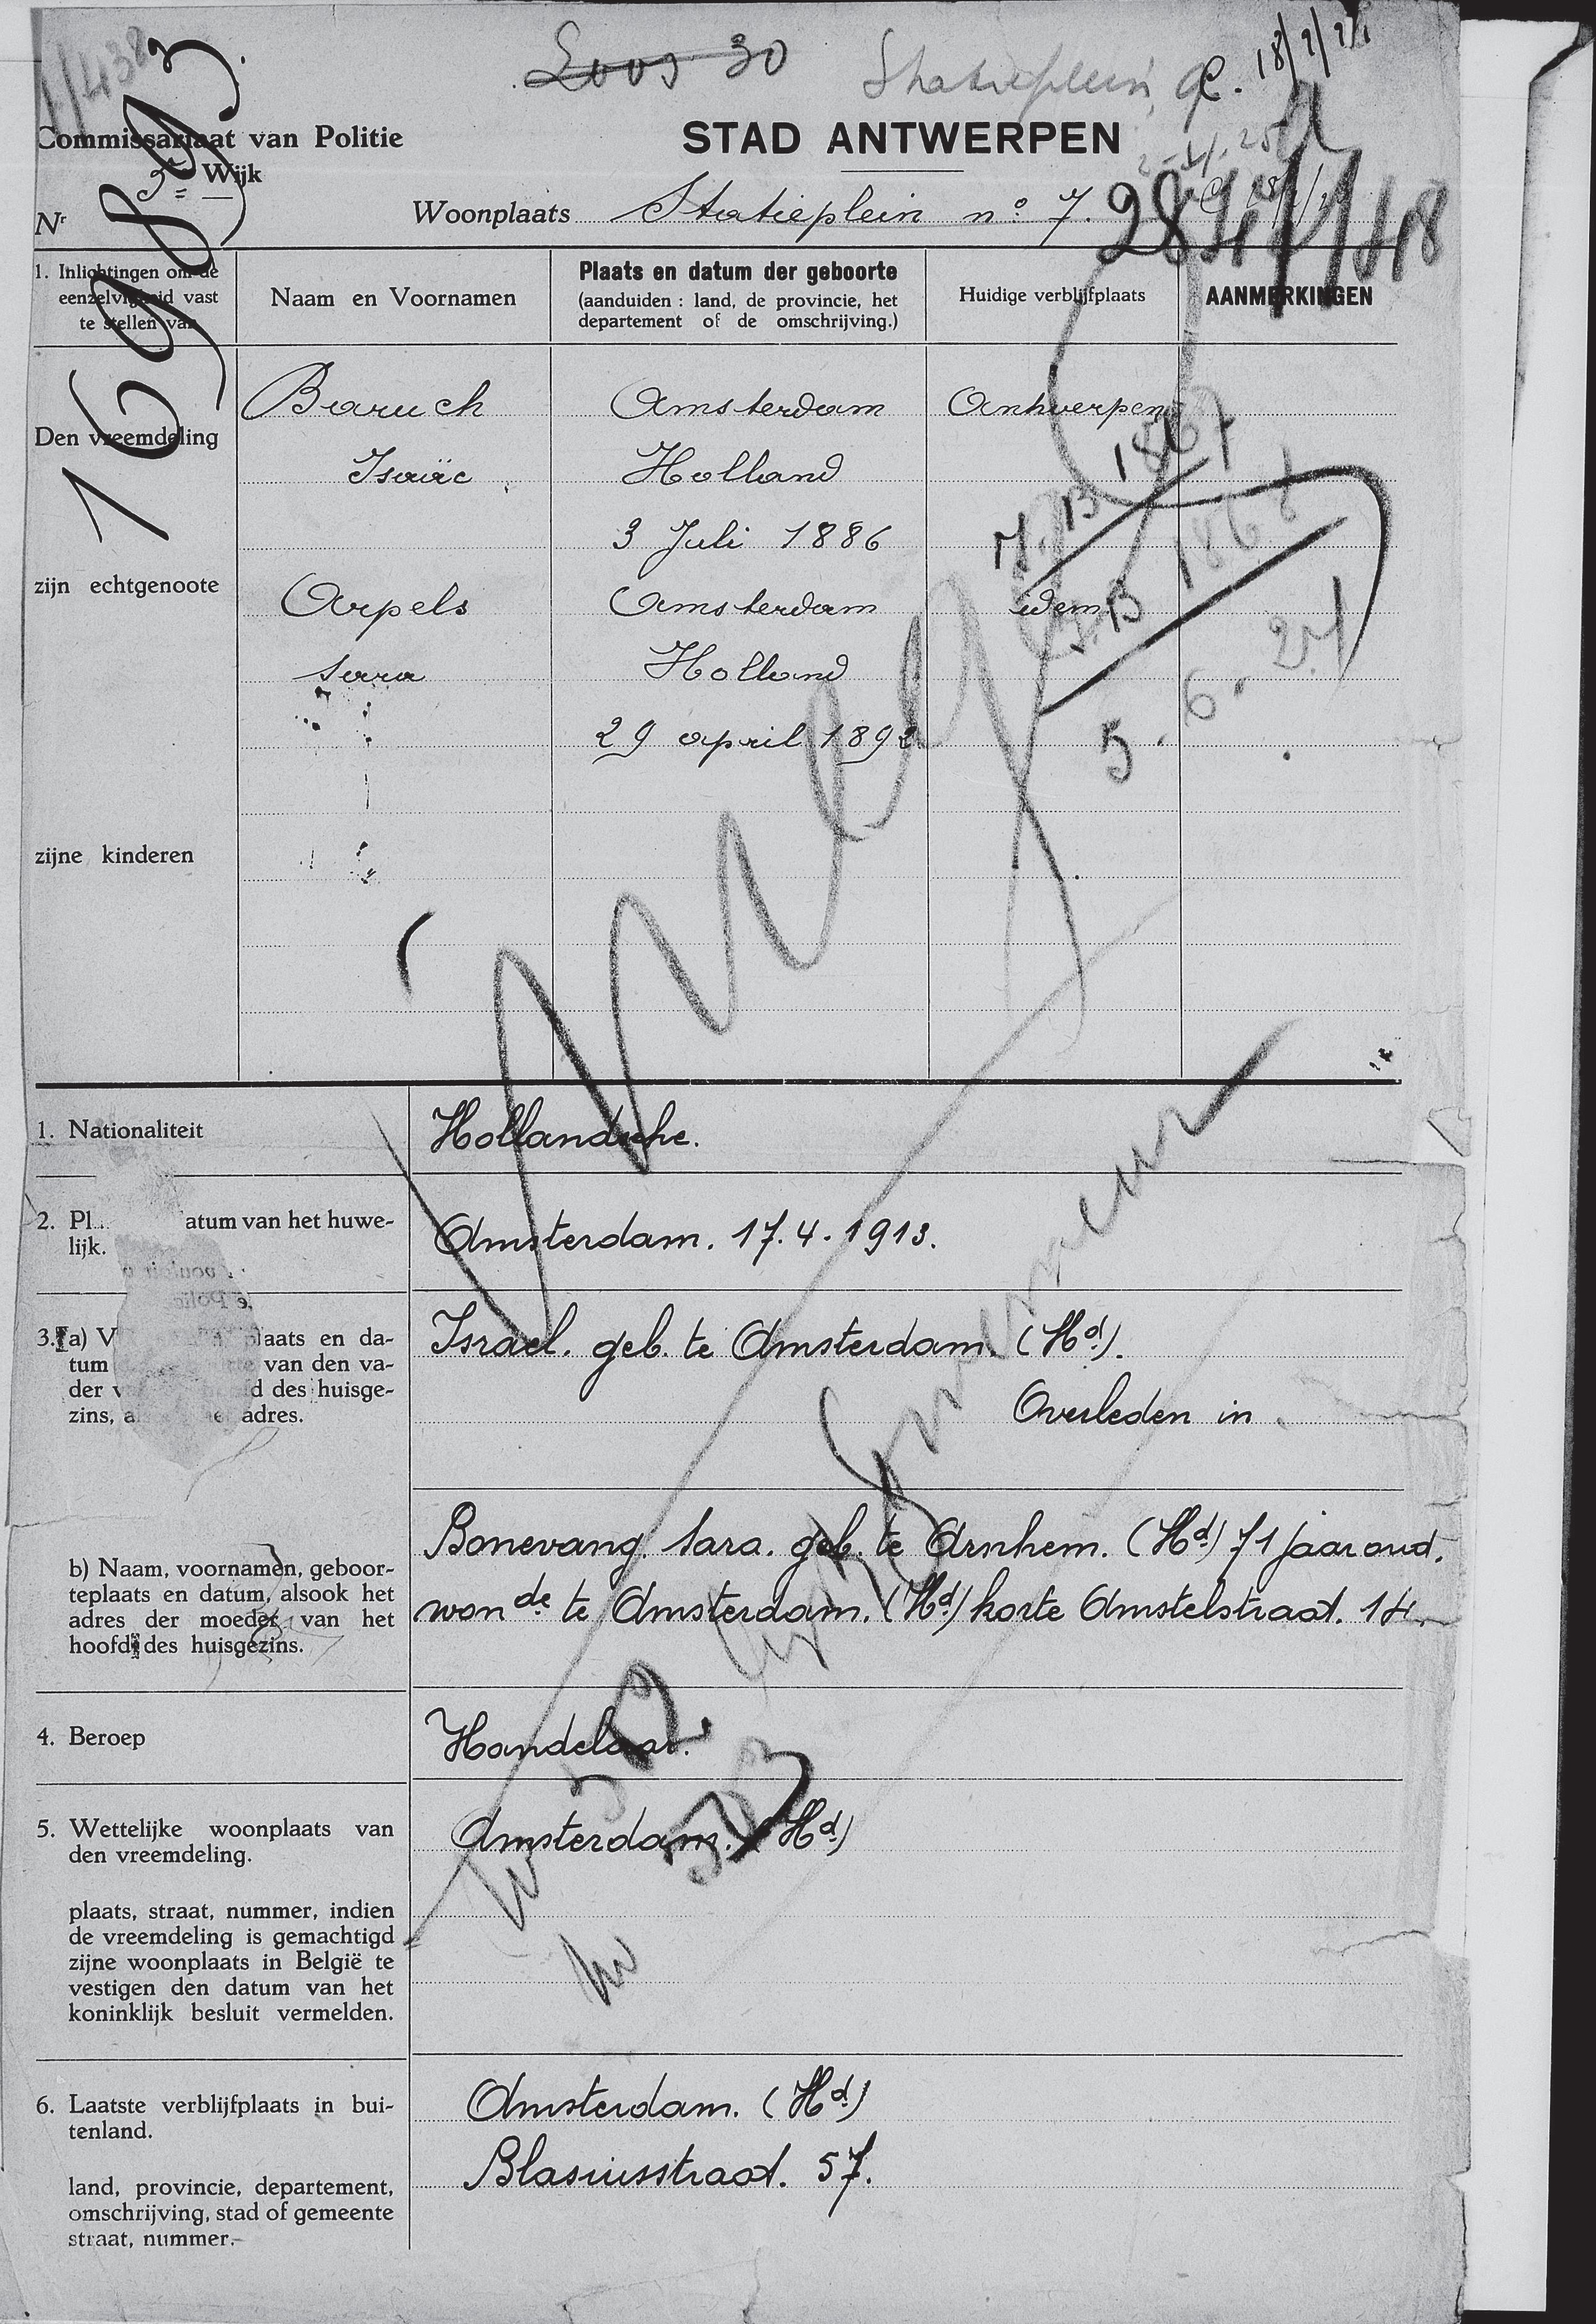 Loos 30 Statieplein
Commissariaat van Politie
STAD ANTWERPEN
3e Wijk
Nr
Woonplaats Statieplein n° 7.
169893
1. Inlichtingen om de eenzelvigheid vast te stellen van
Naam en Voornamen
Plaats en datum der geboorte
(aanduiden : land, de provincie, het
departement of de omschrijving.)
Huidige verblijfplaats
AANMERKINGEN
Den vreemdeling
Baruch Amsterdam Antwerpen
Isaïc Holland
3 Juli 1886
zijn echtgenoote
Arpels Amsterdam idem
Sara Holland
29 april 1892
5. 6. 27
zijne kinderen
1. Nationaliteit
Hollandsche.
2. Pl.. atum van het huwe-
lijk.
Amsterdam. 17.4.1913.
3. a) V plaats en da-
tum van den va-
der v d des huisge-
zins, a adres.
Israel. geb. te Amsterdam. (Hd).
Overleden in
b) Naam, voornamen, geboor-
teplaats en datum, alsook het
adres der moeder van het
hoofd des huisgezins.
Bonevang. Sara. geb. te Arnhem. (Hd) 71 jaar oud.
wonde te Amsterdam. (Hd) korte Amstelstraat. 14
4. Beroep
Handelaar.
5. Wettelijke woonplaats van
den vreemdeling.
Amsterdam. (Hd)
plaats, straat, nummer, indien
de vreemdeling is gemachtigd
zijne woonplaats in België te
vestigen den datum van het
koninklijk besluit vermelden.
6. Laatste verblijfplaats in bui-
tenland.
Amsterdam. (Hd)
Blasiusstraat. 57.
land, provincie, departement,
omschrijving, stad of gemeente
straat, nummer.-